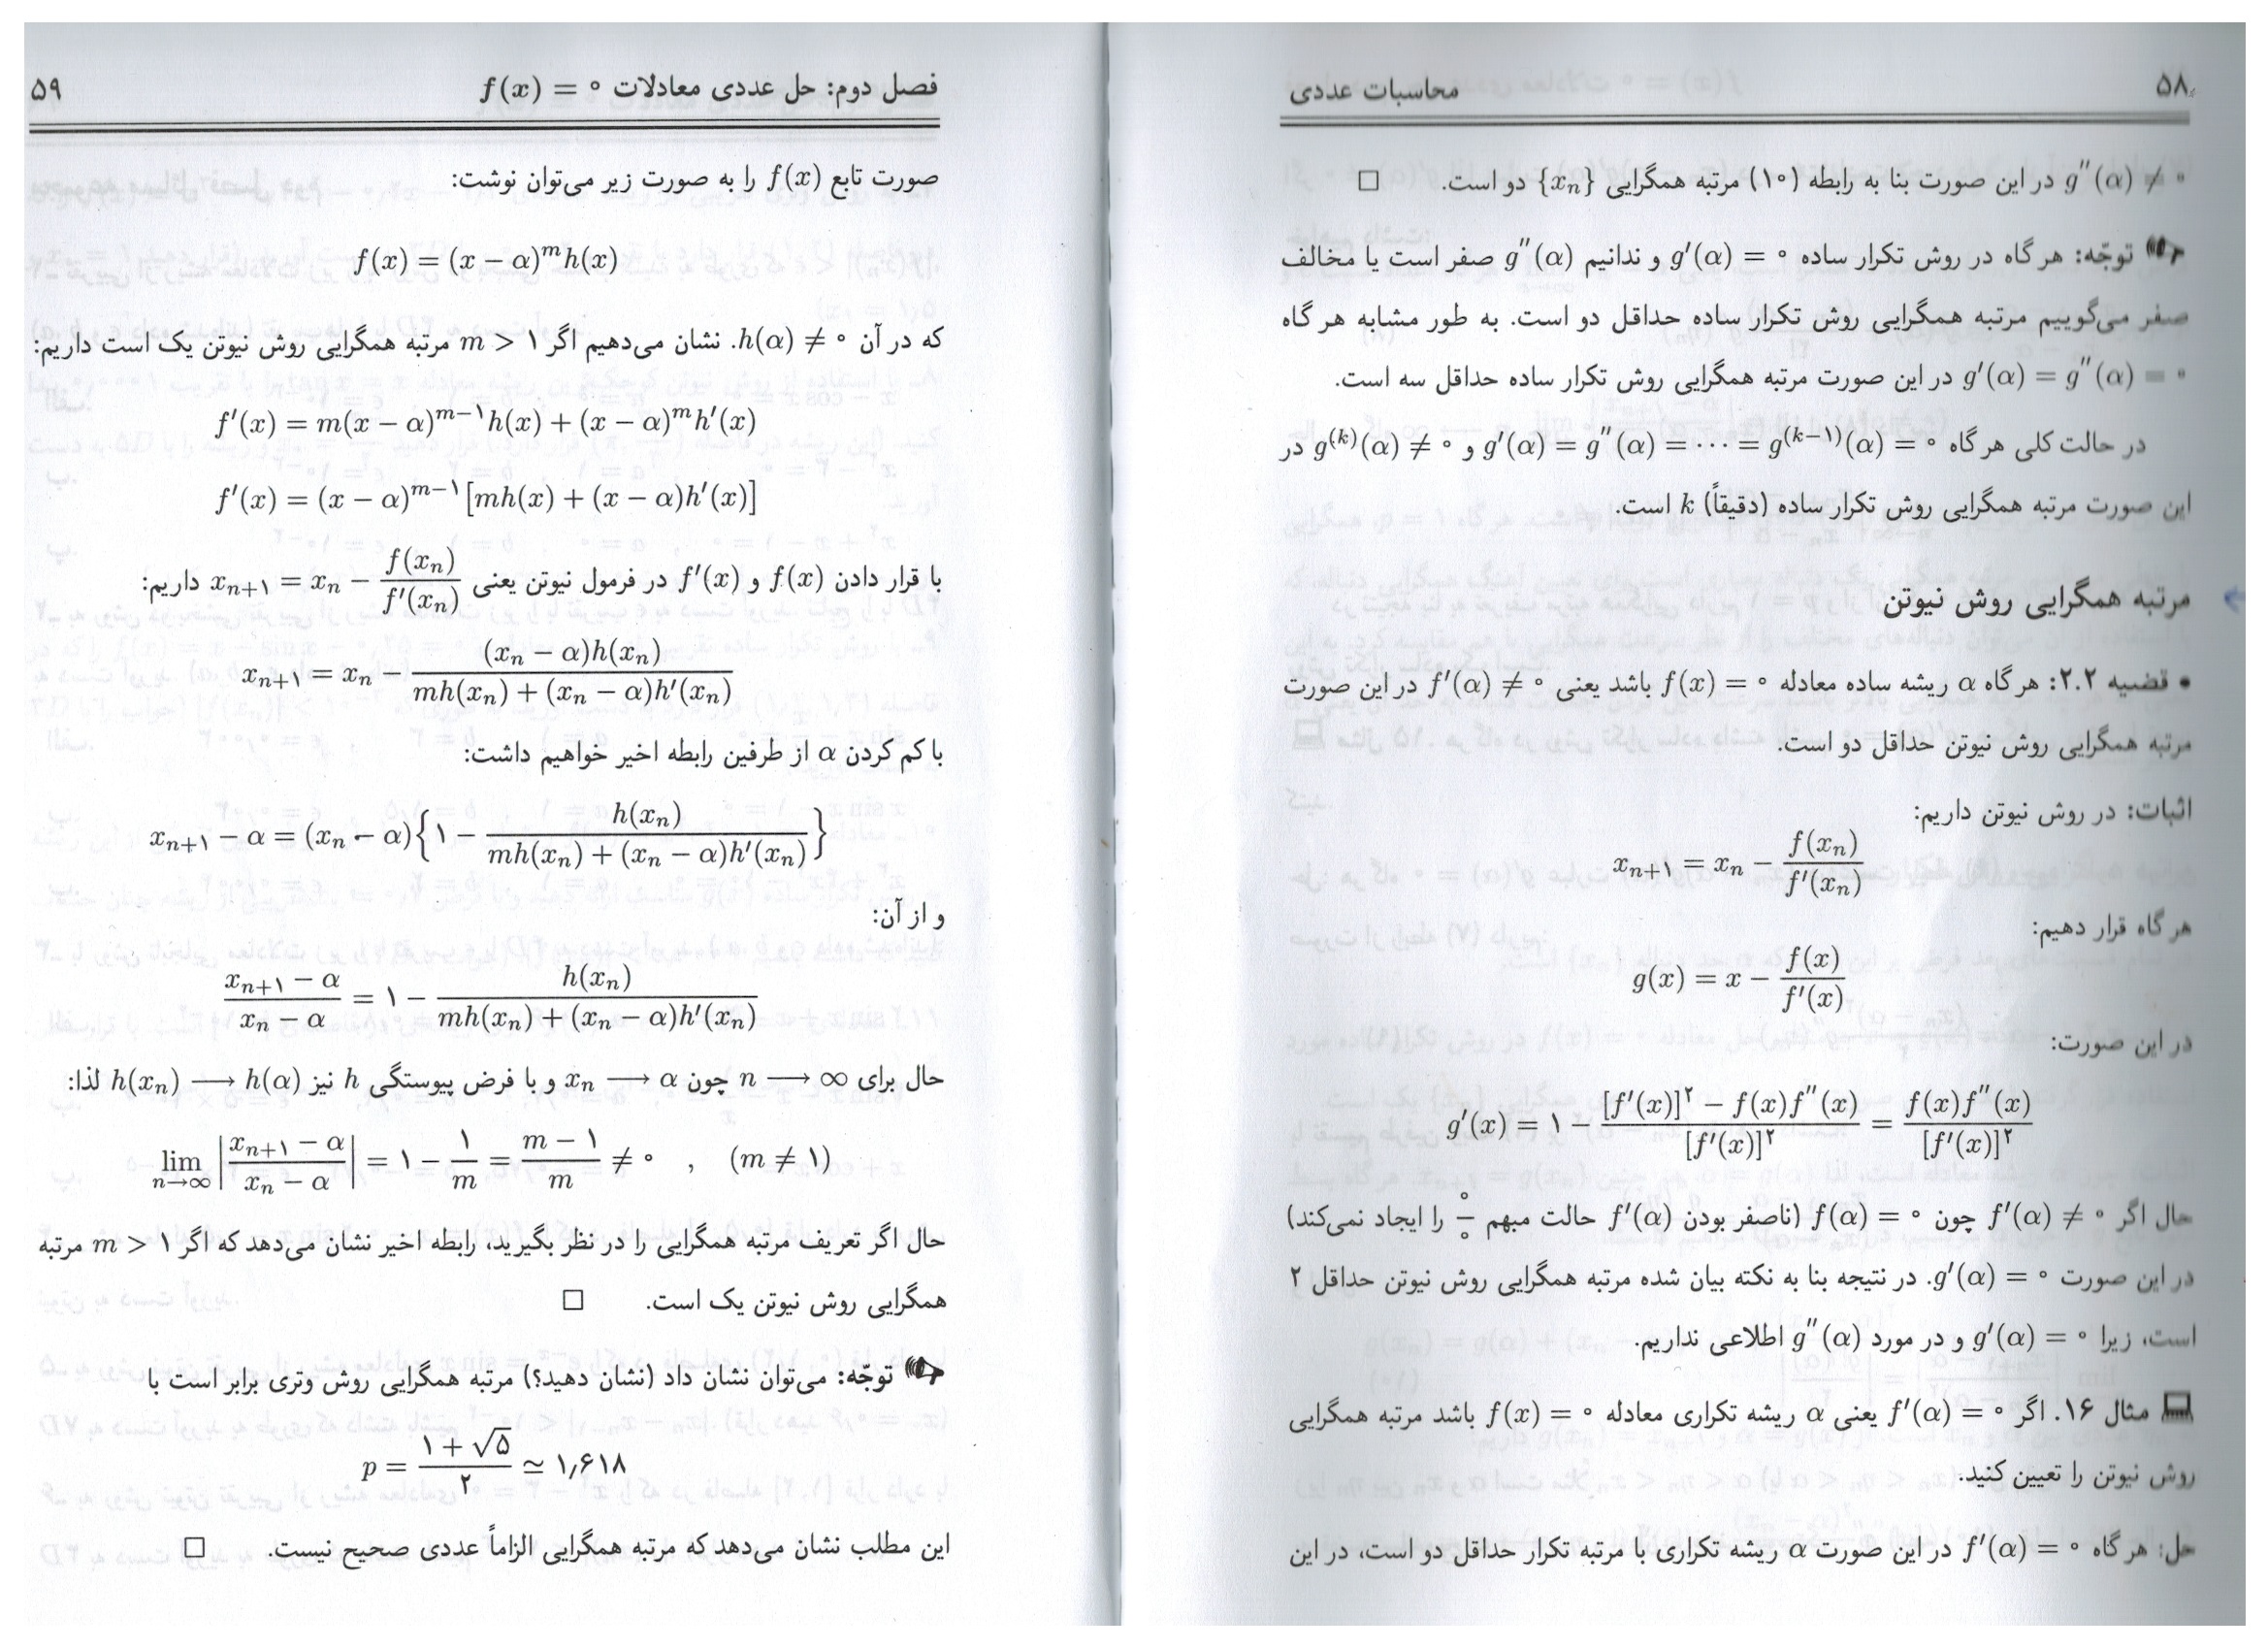 ۵۸ محاسبات عددی
g″(α) ≠ ۰ در این صورت بنا به رابطه (۱۰) مرتبه همگرایی {xₙ} دو است. □
توجّه: هر گاه در روش تکرار ساده g′(α) = ۰ و ندانیم g″(α) صفر است یا مخالف
صفر می‌گوییم مرتبه همگرایی روش تکرار ساده حداقل دو است. به طور مشابه هر گاه
g′(α) = g″(α) = ۰ در این صورت مرتبه همگرایی روش تکرار ساده حداقل سه است.
در حالت کلی هر گاه g′(α) = g″(α) = ⋯ = g^(k−۱)(α) = ۰ و g^(k)(α) ≠ ۰ در
این صورت مرتبه همگرایی روش تکرار ساده (دقیقاً) k است.
مرتبه همگرایی روش نیوتن
• قضیه ۲.۲: هر گاه α ریشه ساده معادله f(x) = ۰ باشد یعنی f′(α) ≠ ۰ در این صورت
مرتبه همگرایی روش نیوتن حداقل دو است.
اثبات: در روش نیوتن داریم:
xₙ₊₁ = xₙ − f(xₙ)/f′(xₙ)
هر گاه قرار دهیم:
g(x) = x − f(x)/f′(x)
در این صورت:
g′(x) = ۱ − ([f′(x)]^۲ − f(x)f″(x))/[f′(x)]^۲ = f(x)f″(x)/[f′(x)]^۲
حال اگر f′(α) ≠ ۰ چون f(α) = ۰ (ناصفر بودن f′(α) حالت مبهم ۰/۰ را ایجاد نمی‌کند)
در این صورت g′(α) = ۰. در نتیجه بنا به نکته بیان شده مرتبه همگرایی روش نیوتن حداقل ۲
است، زیرا g′(α) = ۰ و در مورد g″(α) اطلاعی نداریم.
مثال ۱۶. اگر f′(α) = ۰ یعنی α ریشه تکراری معادله f(x) = ۰ باشد مرتبه همگرایی
روش نیوتن را تعیین کنید.
حل: هر گاه f′(α) = ۰ در این صورت α ریشه تکراری با مرتبه تکرار حداقل دو است، در این
فصل دوم: حل عددی معادلات f(x) = ۰ ۵۹
صورت تابع f(x) را به صورت زیر می‌توان نوشت:
f(x) = (x − α)^m h(x)
که در آن h(α) ≠ ۰. نشان می‌دهیم اگر m > ۱ مرتبه همگرایی روش نیوتن یک است داریم:
f′(x) = m(x − α)^(m−۱) h(x) + (x − α)^m h′(x)
f′(x) = (x − α)^(m−۱) [mh(x) + (x − α)h′(x)]
با قرار دادن f(x) و f′(x) در فرمول نیوتن یعنی xₙ₊₁ = xₙ − f(xₙ)/f′(xₙ) داریم:
xₙ₊₁ = xₙ − (xₙ − α)h(xₙ)/(mh(xₙ) + (xₙ − α)h′(xₙ))
با کم کردن α از طرفین رابطه اخیر خواهیم داشت:
xₙ₊₁ − α = (xₙ − α){۱ − h(xₙ)/(mh(xₙ) + (xₙ − α)h′(xₙ))}
و از آن:
(xₙ₊₁ − α)/(xₙ − α) = ۱ − h(xₙ)/(mh(xₙ) + (xₙ − α)h′(xₙ))
حال برای n ⟶ ∞ چون xₙ ⟶ α و با فرض پیوستگی h نیز h(xₙ) ⟶ h(α) لذا:
lim n→∞ |(xₙ₊₁ − α)/(xₙ − α)| = ۱ − ۱/m = (m − ۱)/m ≠ ۰ , (m ≠ ۱)
حال اگر تعریف مرتبه همگرایی را در نظر بگیرید، رابطه اخیر نشان می‌دهد که اگر m > ۱ مرتبه
همگرایی روش نیوتن یک است. □
توجّه: می‌توان نشان داد (نشان دهید؟) مرتبه همگرایی روش وتری برابر است با
p = (۱ + √۵)/۲ ≃ ۱٫۶۱۸
این مطلب نشان می‌دهد که مرتبه همگرایی الزاماً عددی صحیح نیست. □